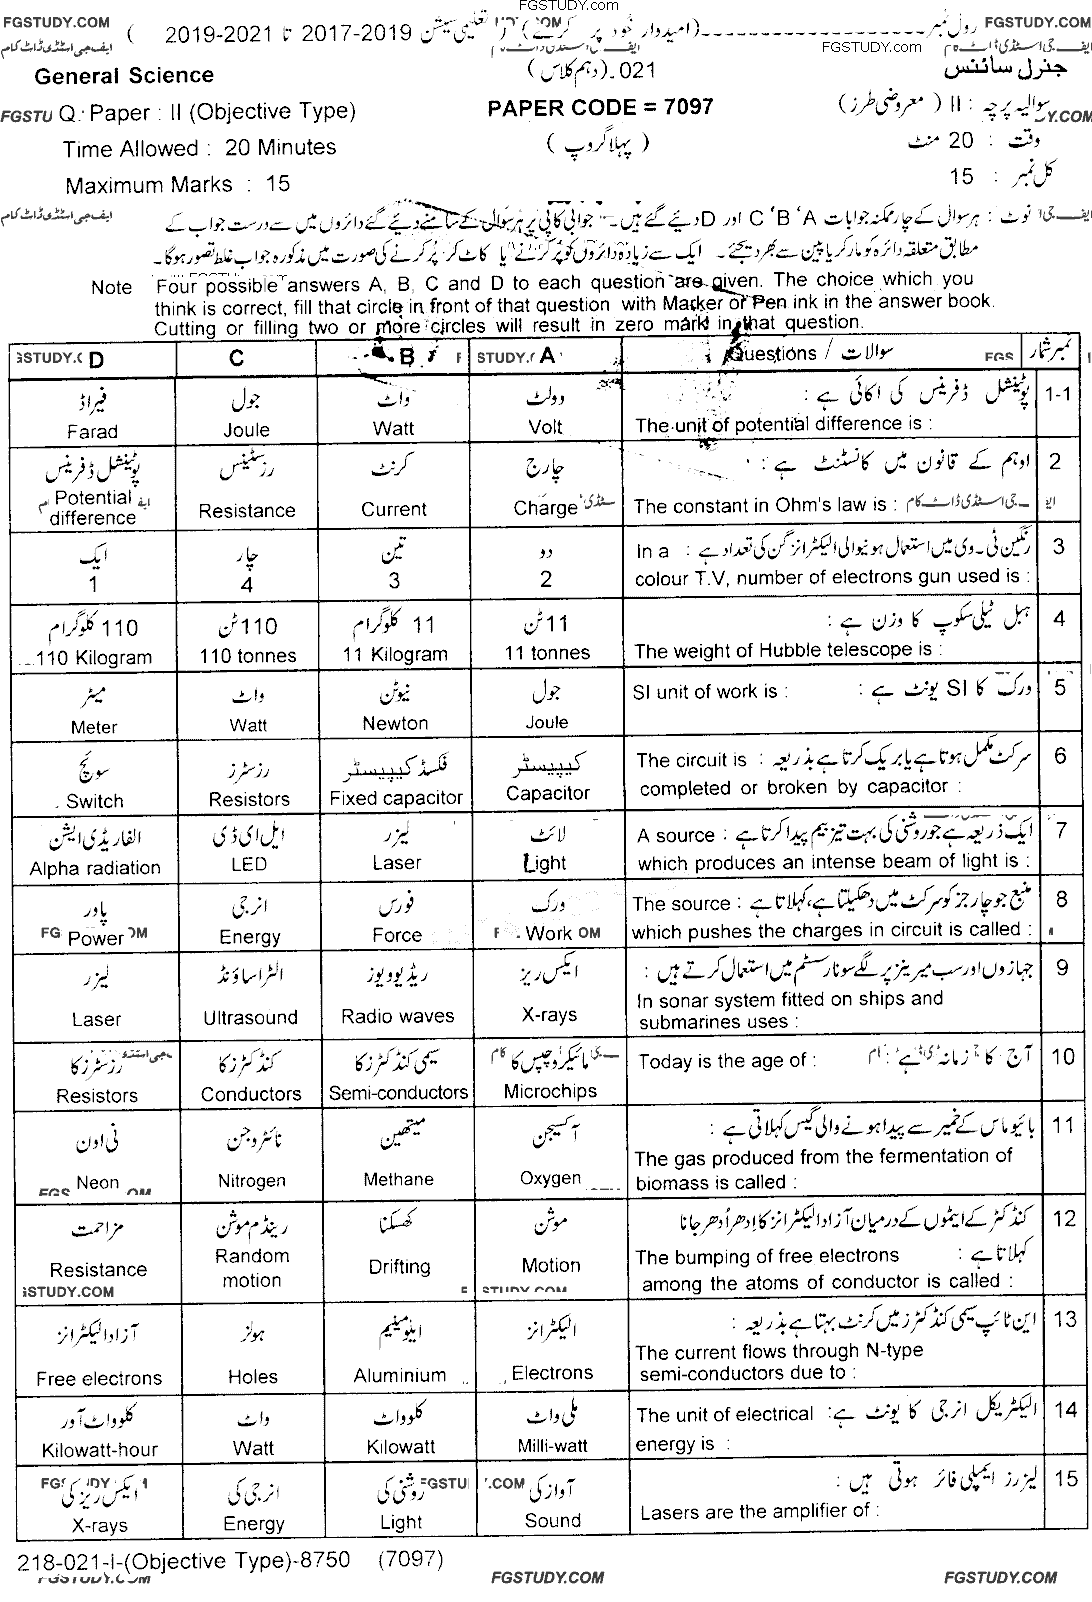 FGSTUDY.COM
FGSTUDY.COM FGSTUDY.COM رول نمبر (امیدوار خود پر کرے) (تعلیمی سیشن 2017-2019 تا 2019-2021)
ایف جی اسٹڈی ڈاٹ کام FGSTUDY.com
General Science 021۔(دہم کلاس) جنرل سائنس
FGSTU Q. Paper : II (Objective Type) PAPER CODE = 7097 سوالیہ پرچہ : II (معروضی طرز) Y.COM
Time Allowed : 20 Minutes (پہلا گروپ) وقت : 20 منٹ
Maximum Marks : 15 کل نمبر : 15
نوٹ : ہر سوال کے چار ممکنہ جوابات A، B، C اور D دیئے گئے ہیں۔ جوابی کاپی پر ہر سوال کے سامنے دیئے گئے دائروں میں سے درست جواب کے
مطابق متعلقہ دائرہ کو مارکر یا پین سے بھر دیجئے۔ ایک سے زیادہ دائروں کو پُر کرنے یا کاٹ کر پُر کرنے کی صورت میں مذکورہ جواب غلط تصور ہوگا۔
Note Four possible answers A, B, C and D to each question are given. The choice which you
think is correct, fill that circle in front of that question with Marker or Pen ink in the answer book.
Cutting or filling two or more circles will result in zero mark in that question.
D C B A Questions / سوالات نمبر شمار
فیراڈ جول واٹ وولٹ پوٹینشل ڈفرینس کی اکائی ہے : 1-1
Farad Joule Watt Volt The unit of potential difference is :
پوٹینشل ڈفرینس رزسٹینس کرنٹ چارج اوہم کے قانون میں کانسٹنٹ ہے : 2
Potential difference Resistance Current Charge The constant in Ohm's law is :
ایک چار تین دو رنگین ٹی۔وی میں استعمال ہونیوالی الیکٹرانز گن کی تعداد ہے : In a 3
1 4 3 2 colour T.V, number of electrons gun used is :
110 کلوگرام 110 ٹن 11 کلوگرام 11 ٹن ہبل ٹیلی سکوپ کا وزن ہے : 4
110 Kilogram 110 tonnes 11 Kilogram 11 tonnes The weight of Hubble telescope is :
میٹر واٹ نیوٹن جول ورک کا SI یونٹ ہے : SI unit of work is : 5
Meter Watt Newton Joule
سوئچ رزسٹرز فکسڈ کیپیسٹر کیپیسٹر سرکٹ مکمل ہوتا ہے یا بریک کرتا ہے بذریعہ : The circuit is 6
Switch Resistors Fixed capacitor Capacitor completed or broken by capacitor :
الفا ریڈی ایشن ایل ای ڈی لیزر لائٹ ایک ذریعہ ہے جو روشنی کی بہت تیز بیم پیدا کرتا ہے : A source 7
Alpha radiation LED Laser Light which produces an intense beam of light is :
پاور انرجی فورس ورک منبع جو چارجز کو سرکٹ میں دھکیلتا ہے، کہلاتا ہے : The source 8
Power Energy Force Work which pushes the charges in circuit is called :
لیزر الٹراساؤنڈ ریڈیو ویوز ایکس ریز جہازوں اور سب میرینز پر لگے سونار سسٹم میں استعمال کرتے ہیں : 9
Laser Ultrasound Radio waves X-rays In sonar system fitted on ships and
submarines uses :
رزسٹرز کا کنڈکٹرز کا سیمی کنڈکٹرز کا مائیکروچپس کا آج کا زمانہ ہے : Today is the age of : 10
Resistors Conductors Semi-conductors Microchips
نی اون نائٹروجن میتھین آکسیجن بائیوماس کے خمیر سے پیدا ہونے والی گیس کہلاتی ہے : 11
Neon Nitrogen Methane Oxygen The gas produced from the fermentation of
biomass is called :
مزاحمت رینڈم موشن کھسکنا موشن کنڈکٹر کے ایٹموں کے درمیان آزاد الیکٹرانز کا اِدھر اُدھر جانا 12
کہلاتا ہے :
Resistance Random motion Drifting Motion The bumping of free electrons
among the atoms of conductor is called :
آزاد الیکٹرانز ہولز ایلومینیم الیکٹرانز این ٹائپ سیمی کنڈکٹرز میں کرنٹ بہتا ہے بذریعہ : 13
Free electrons Holes Aluminium Electrons The current flows through N-type
semi-conductors due to :
کلوواٹ آور واٹ کلوواٹ ملی واٹ الیکٹریکل انرجی کا یونٹ ہے: The unit of electrical 14
Kilowatt-hour Watt Kilowatt Milli-watt energy is :
ایکس ریز کی انرجی کی روشنی کی آواز کی لیزرز ایمپلی فائر ہوتی ہیں : 15
X-rays Energy Light Sound Lasers are the amplifier of :
218-021-I-(Objective Type)-8750 (7097)
FGSTUDY.COM FGSTUDY.COM FGSTUDY.COM